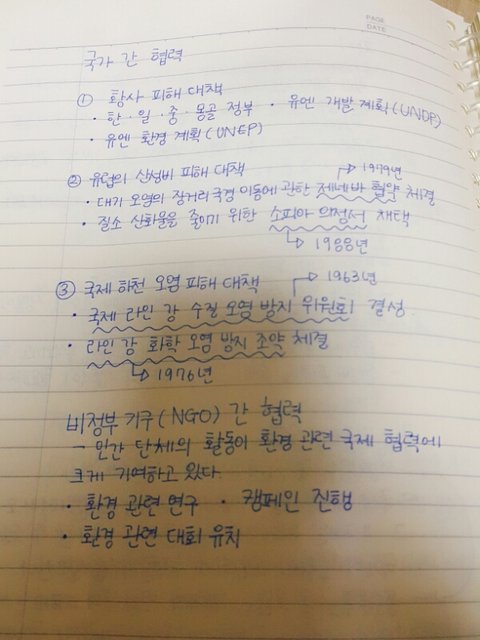 PAGE
DATE
국가 간 협력
① 황사 피해 대책
· 한·일·중·몽골 정부 · 유엔 개발 계획(UNDP)
· 유엔 환경 계획(UNEP)
② 유럽의 산성비 피해 대책
→1979년
· 대기 오염의 장거리 국경 이동에 관한 제네바 협약 체결
· 질소 산화물을 줄이기 위한 소피아 의정서 채택
→1988년
③ 국제 하천 오염 피해 대책
→1963년
· 국제 라인 강 수질 오염 방지 위원회 결성
· 라인 강 화학 오염 방지 조약 체결
→1976년
비정부 기구(NGO) 간 협력
- 민간 단체의 활동이 환경 관련 국제 협력에
크게 기여하고 있다.
· 환경 관련 연구 · 캠페인 진행
· 환경 관련 대회 유치